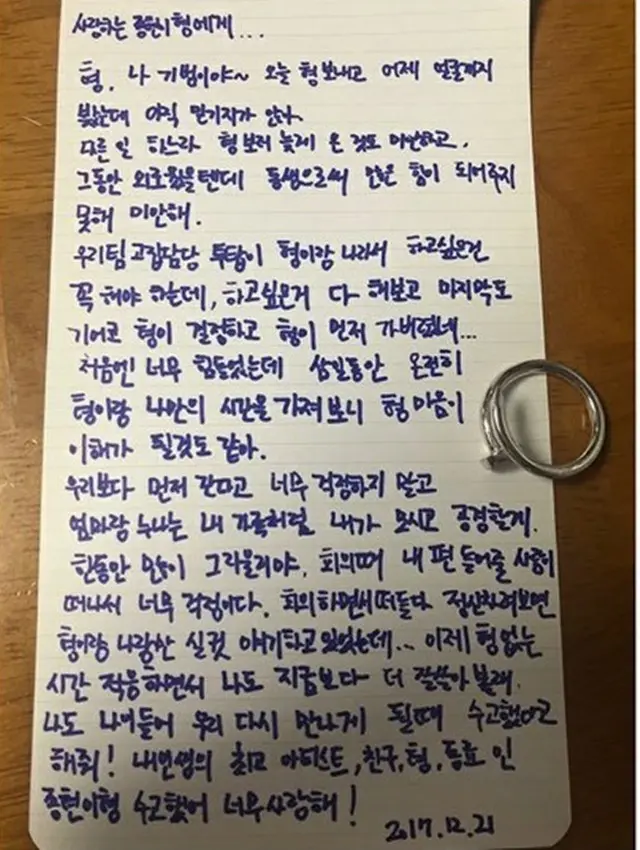 사랑하는 종현이형에게...
형. 나 기범이야~ 오늘 형보내고 어제 얼굴까지
봤는데 아직 믿기지가 않아.
다른 일 하느라 형 보러 늦게 온 것도 미안하고,
그동안 외로웠을텐데 동생으로써 많은 힘이 되어주지
못해 미안해.
우리팀 고집담당 투탑이 형이랑 나라서 하고싶은건
꼭 해야 하는데, 하고싶은거 다 해보고 마지막도
기어코 형이 결정하고 형이 먼저 가버렸네...
처음엔 너무 힘들었는데 삼일동안 온전히
형이랑 나만의 시간을 가져 보니 형 마음이
이해가 될것도 같아.
우리보다 먼저 간다고 너무 걱정하지 말고
엄마랑 누나는 내 가족처럼 내가 모시고 공경할게.
한동안 많이 그리울거야. 회의때 내 편 들어줄 사람이
떠나서 너무 걱정이다. 회의하면서 떠들다 정신차려보면
형이랑 나랑만 실컷 얘기하고 있었는데... 이제 형 없는
시간 적응하면서 나도 지금보다 더 잘살아 볼래.
나도 나이들어 우리 다시 만나게 될때 수고했다고
해줘! 내인생의 최고 아티스트, 친구, 형, 동료 인
종현이형 수고했어 너무사랑해!
2017.12.21